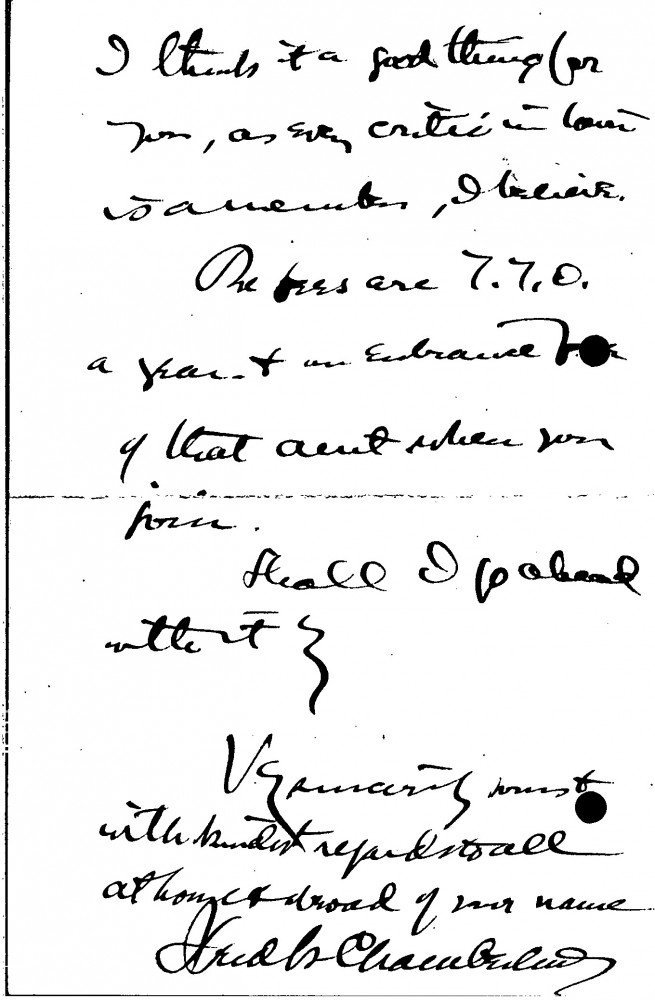 I think it a good thing for
you, as every critic in town
is a member, I believe.
The fees are 7.7.0.
a year & an entrance fee
of that amt when you
join.
Shall I go ahead
with it?
Vy sincerely yours &
with kindest regards to all
at home & abroad of your name
Chamberlin